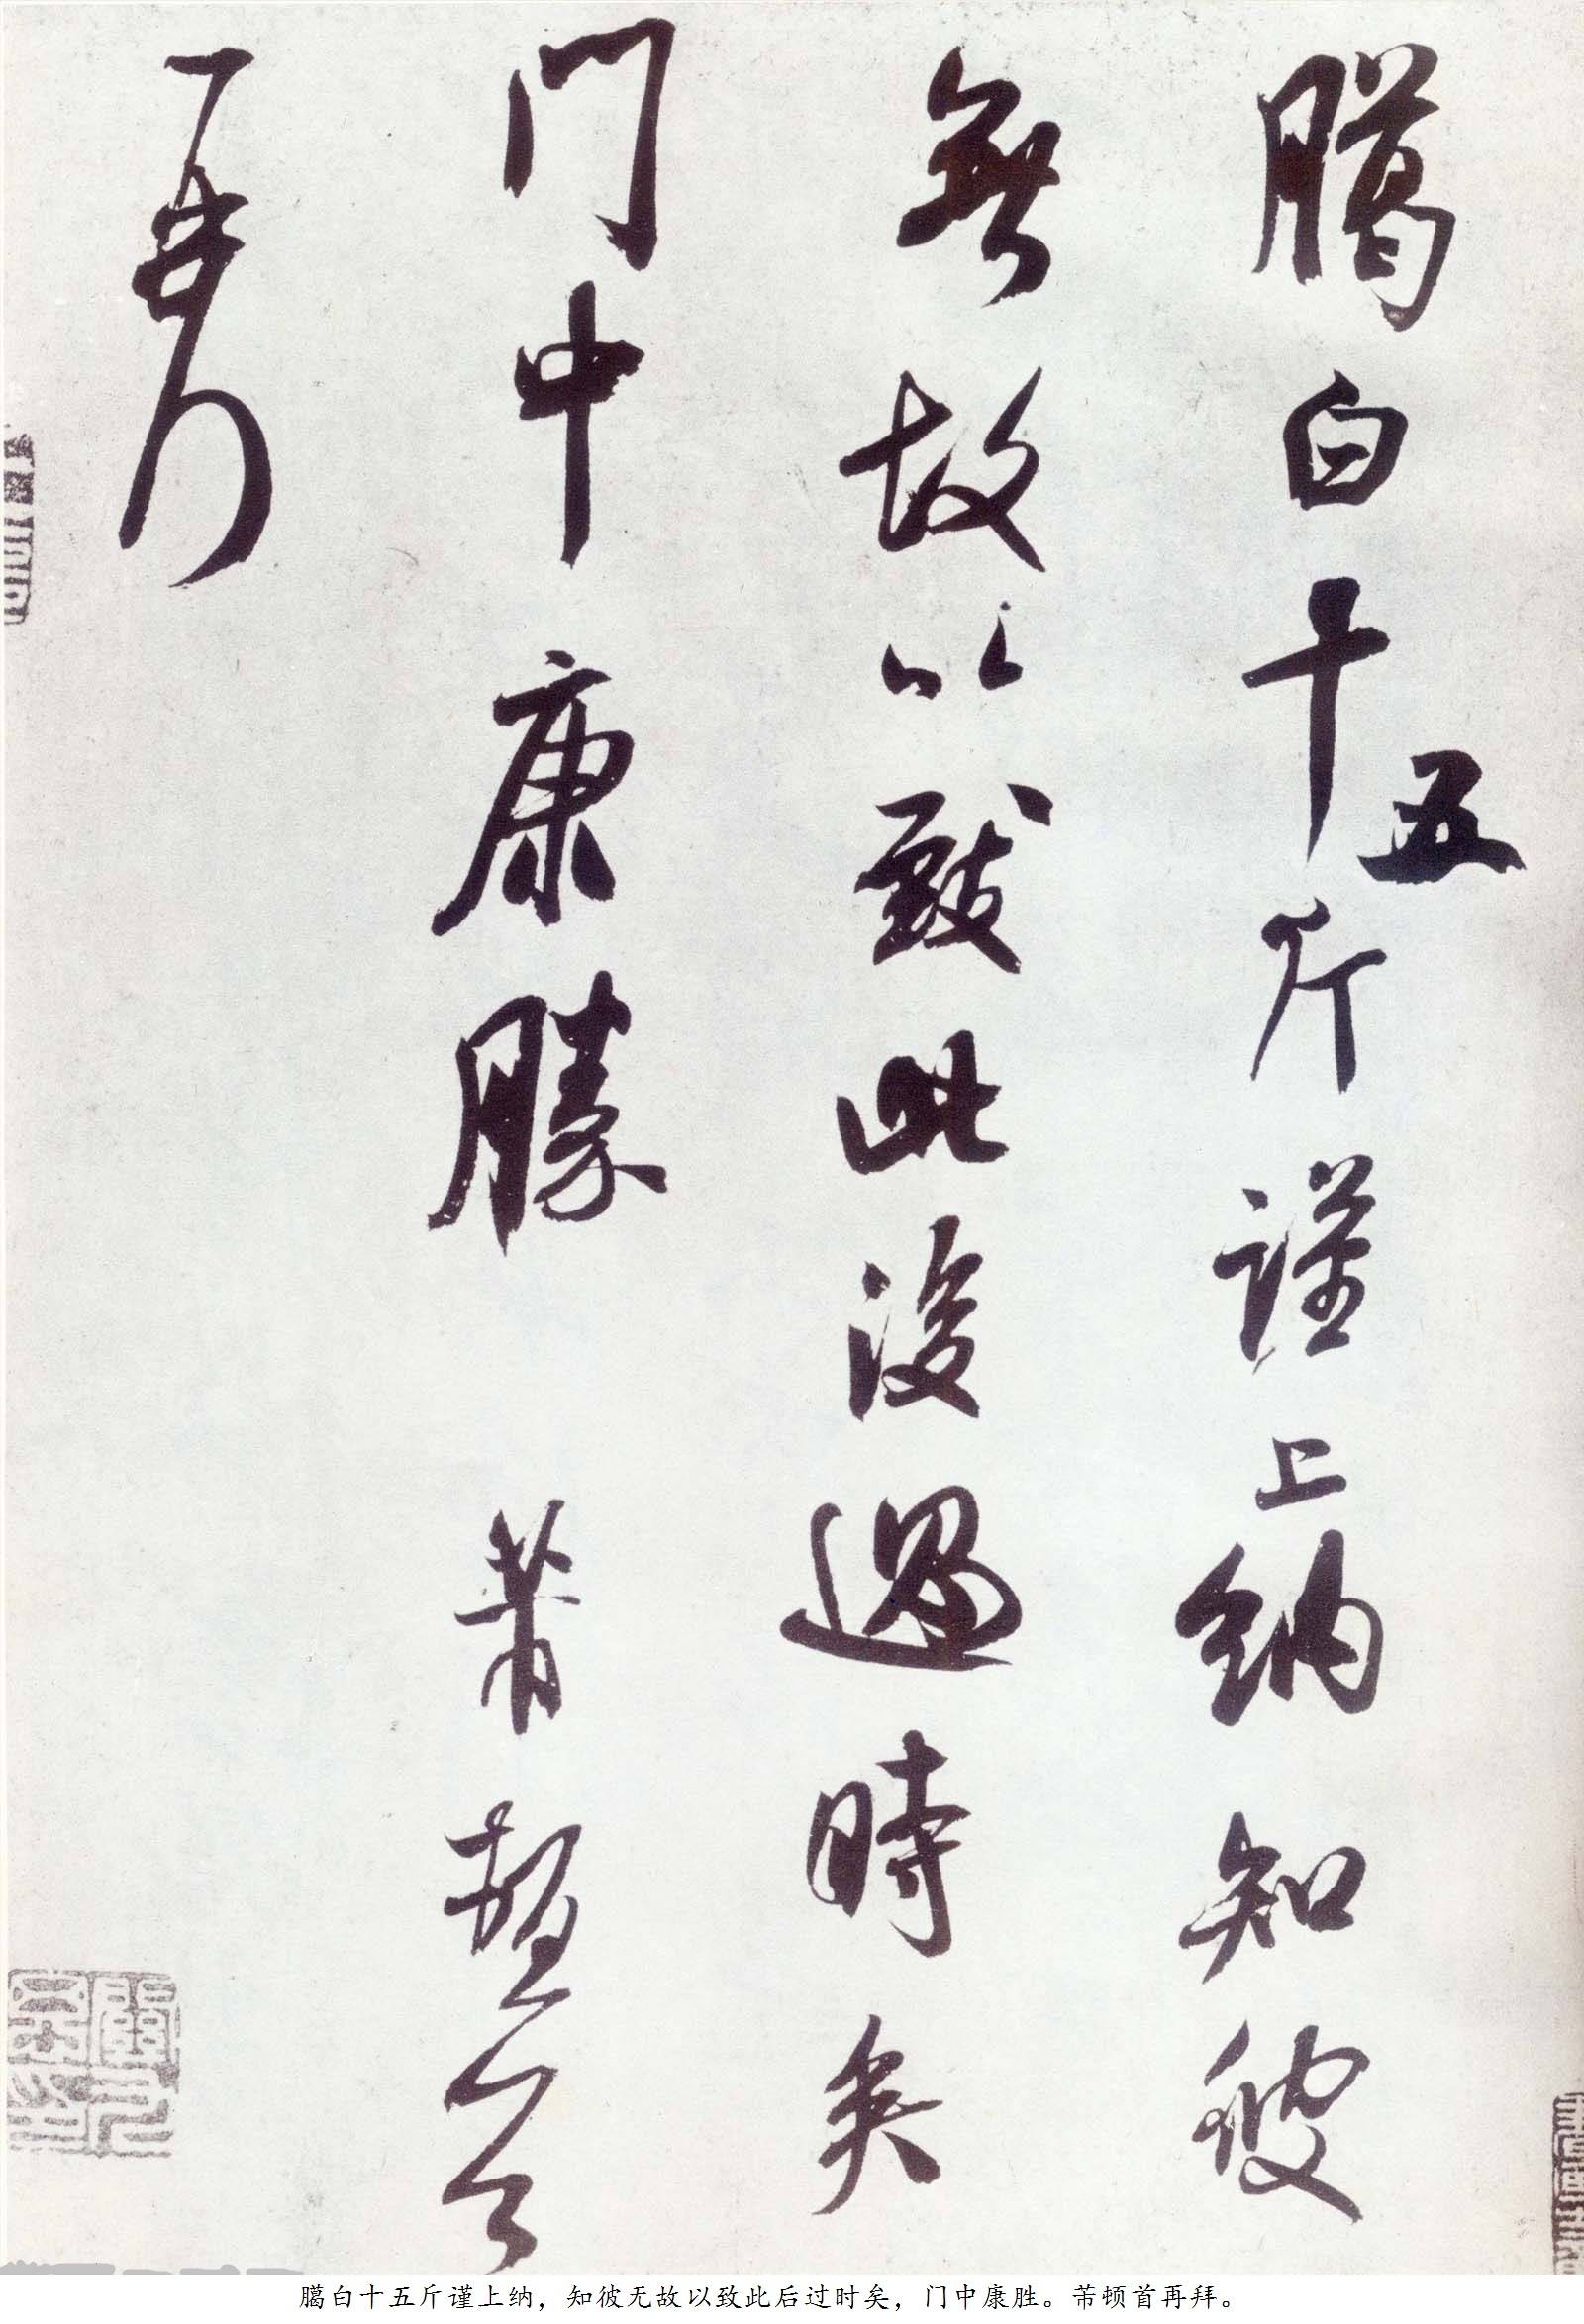 臈白十五斤謹上納知彼
無故以致此後過時矣
門中康勝 芾頓首
再拜
臈白十五斤谨上纳，知彼无故以致此后过时矣，门中康胜。芾顿首再拜。